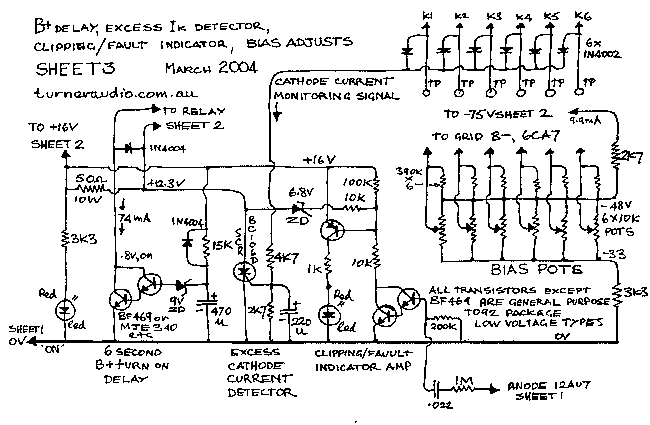 B+ DELAY, EXCESS IK DETECTOR,
CLIPPING/FAULT INDICATOR, BIAS ADJUSTS
SHEET 3 MARCH 2004
turneraudio.com.au
K1 K2 K3 K4 K5 K6
6x
1N4002
TP TP TP TP TP TP
CATHODE CURRENT
MONITORING SIGNAL
TO RELAY
SHEET 2
TO -75V SHEET 2
9.9mA
TO GRID B-, 6CA7
TO +16V
SHEET 2
1N4004
+16V
2K7
390K
x 6
50Ω
10W
+12.3V
6.8V
ZD
100K
10K
-48V
6x10K
POTS
74mA
1N4004
SCR
3K3
15K
4K7
1K
10K
-33
BIAS POTS
.8V,on
9V
ZD
Red
led
BF469 or
MJE340
etc
470
u
2K7
220
u
Red
led
ALL TRANSISTORS EXCEPT
BF469 ARE GENERAL PURPOSE
TO92 PACKAGE
LOW VOLTAGE TYPES
3K3
200K
SHEET 1
0V
'ON'
0V
6 SECOND
B+ TURN ON
DELAY
EXCESS
CATHODE
CURRENT
DETECTOR
CLIPPING/FAUULT
INDICATOR AMP
.022
1M
ANODE 12AU7
SHEET 1